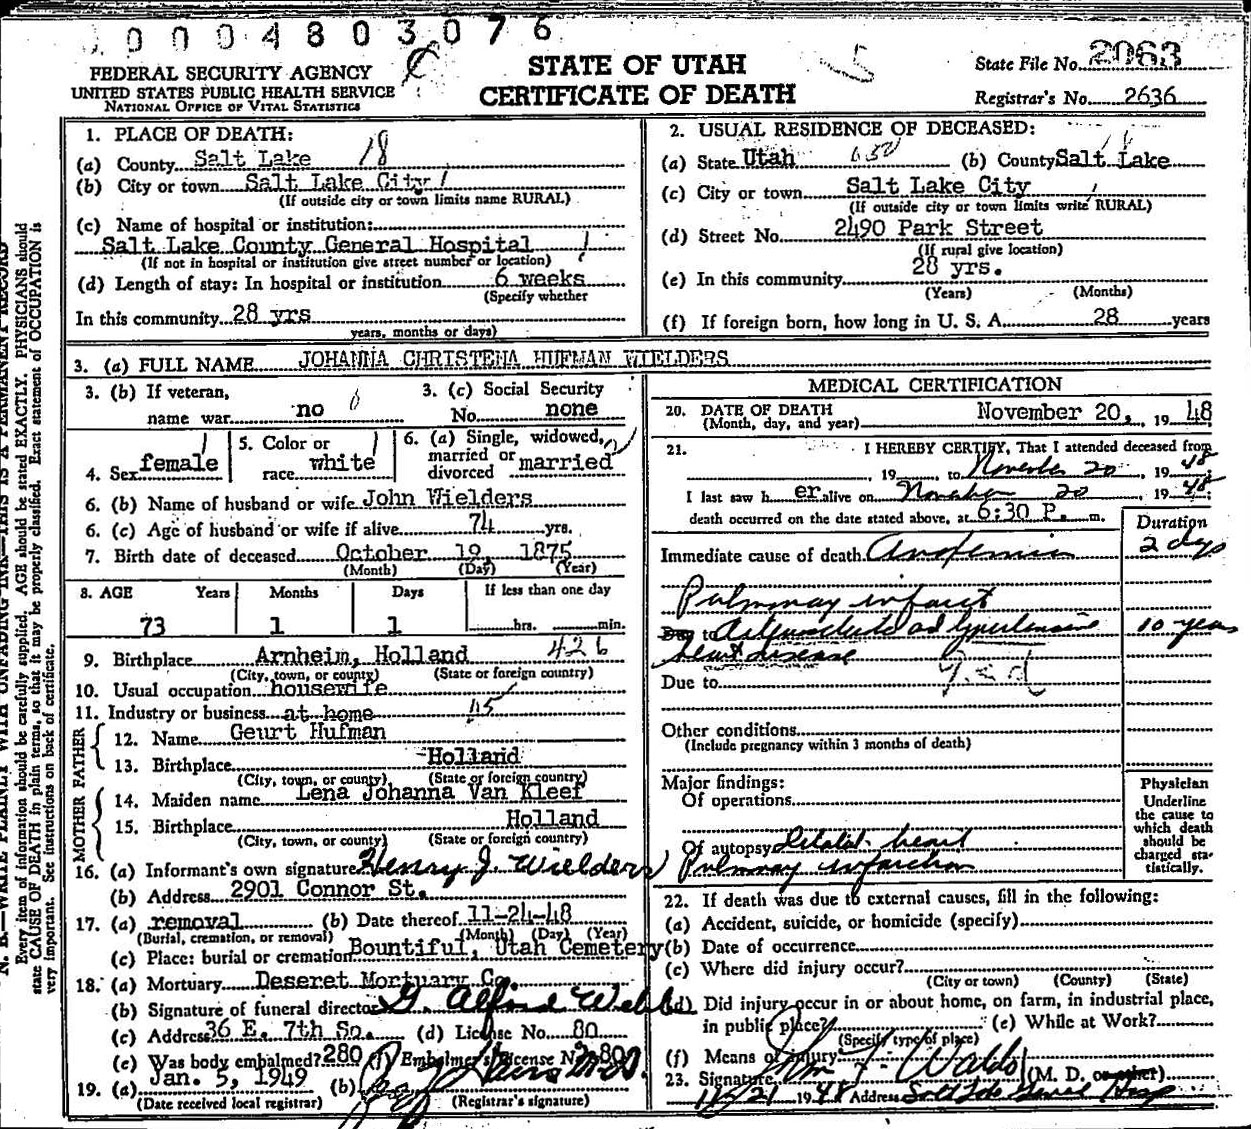 0004803076
FEDERAL SECURITY AGENCY
UNITED STATES PUBLIC HEALTH SERVICE
NATIONAL OFFICE OF VITAL STATISTICS
STATE OF UTAH
CERTIFICATE OF DEATH
5
State File No. 2063
Registrar's No. 2636
1. PLACE OF DEATH:
(a) County Salt Lake 18
(b) City or town Salt Lake City 1
(If outside city or town limits name RURAL)
(c) Name of hospital or institution:
Salt Lake County General Hospital 1
(If not in hospital or institution give street number or location)
(d) Length of stay: In hospital or institution 6 weeks
(Specify whether
In this community 28 yrs
years, months or days)
2. USUAL RESIDENCE OF DECEASED:
(a) State Utah (b) County Salt Lake
(c) City or town Salt Lake City
(If outside city or town limits write RURAL)
(d) Street No. 2490 Park Street
(If rural give location)
(e) In this community 28 yrs.
(Years) (Months)
(f) If foreign born, how long in U. S. A. 28 years
3. (a) FULL NAME JOHANNA CHRISTENA HUFMAN WIELDERS
3. (b) If veteran,
name war no
3. (c) Social Security
No. none
4. Sex female
5. Color or
race white
6. (a) Single, widowed,
married or
divorced married
6. (b) Name of husband or wife John Wielders
6. (c) Age of husband or wife if alive 74 yrs.
7. Birth date of deceased October 19, 1875
(Month) (Day) (Year)
8. AGE Years Months Days If less than one day
73 1 1 hrs. min.
9. Birthplace Arnheim, Holland 426
(City, town, or county) (State or foreign country)
10. Usual occupation housewife
11. Industry or business at home
FATHER
12. Name Geurt Hufman
13. Birthplace Holland
(City, town, or county) (State or foreign country)
MOTHER
14. Maiden name Lena Johanna Van Kleef
15. Birthplace Holland
(City, town, or county) (State or foreign country)
16. (a) Informant's own signature Henry J. Wielders
(b) Address 2901 Connor St.
17. (a) removal (b) Date thereof 11-24-48
(Burial, cremation, or removal) (Month) (Day) (Year)
(c) Place: burial or cremation Bountiful, Utah Cemetery
18. (a) Mortuary Deseret Mortuary Co.
(b) Signature of funeral director G. Alfred Webb
(c) Address 36 E. 7th So. (d) License No. 80
(e) Was body embalmed? 280 (f) Embalmer's License No. 80
19. (a) Jan. 5, 1949 (b)
(Date received local registrar) (Registrar's signature)
MEDICAL CERTIFICATION
20. DATE OF DEATH November 20, 1948
(Month, day, and year)
21. I HEREBY CERTIFY, That I attended deceased from
, 19 , to November 20, 1948;
I last saw h er alive on November 20, 1948;
death occurred on the date stated above, at 6:30 P. m.
Duration
Immediate cause of death 2 days
Pulmonary infarct
Due to and hypertensive 10 years
heart disease
Due to
Other conditions
(Include pregnancy within 3 months of death)
Major findings:
Of operations
Of autopsy Dilated heart
Pulmonary infarction
Physician
Underline
the cause to
which death
should be
charged sta-
tistically.
22. If death was due to external causes, fill in the following:
(a) Accident, suicide, or homicide (specify)
(b) Date of occurrence
(c) Where did injury occur?
(City or town) (County) (State)
(d) Did injury occur in or about home, on farm, in industrial place,
in public place? (e) While at Work?
(Specify type of place)
(f) Means of injury
23. Signature Waldo (M. D. or other)
11/21 1948 Address Salt Lake General Hosp
N. B.—WRITE PLAINLY WITH UNFADING INK—THIS IS A PERMANENT RECORD
Every item of information should be carefully supplied. AGE should be stated EXACTLY. PHYSICIANS should
state CAUSE OF DEATH in plain terms, so that it may be properly classified. Exact statement of OCCUPATION is
very important. See instructions on back of certificate.